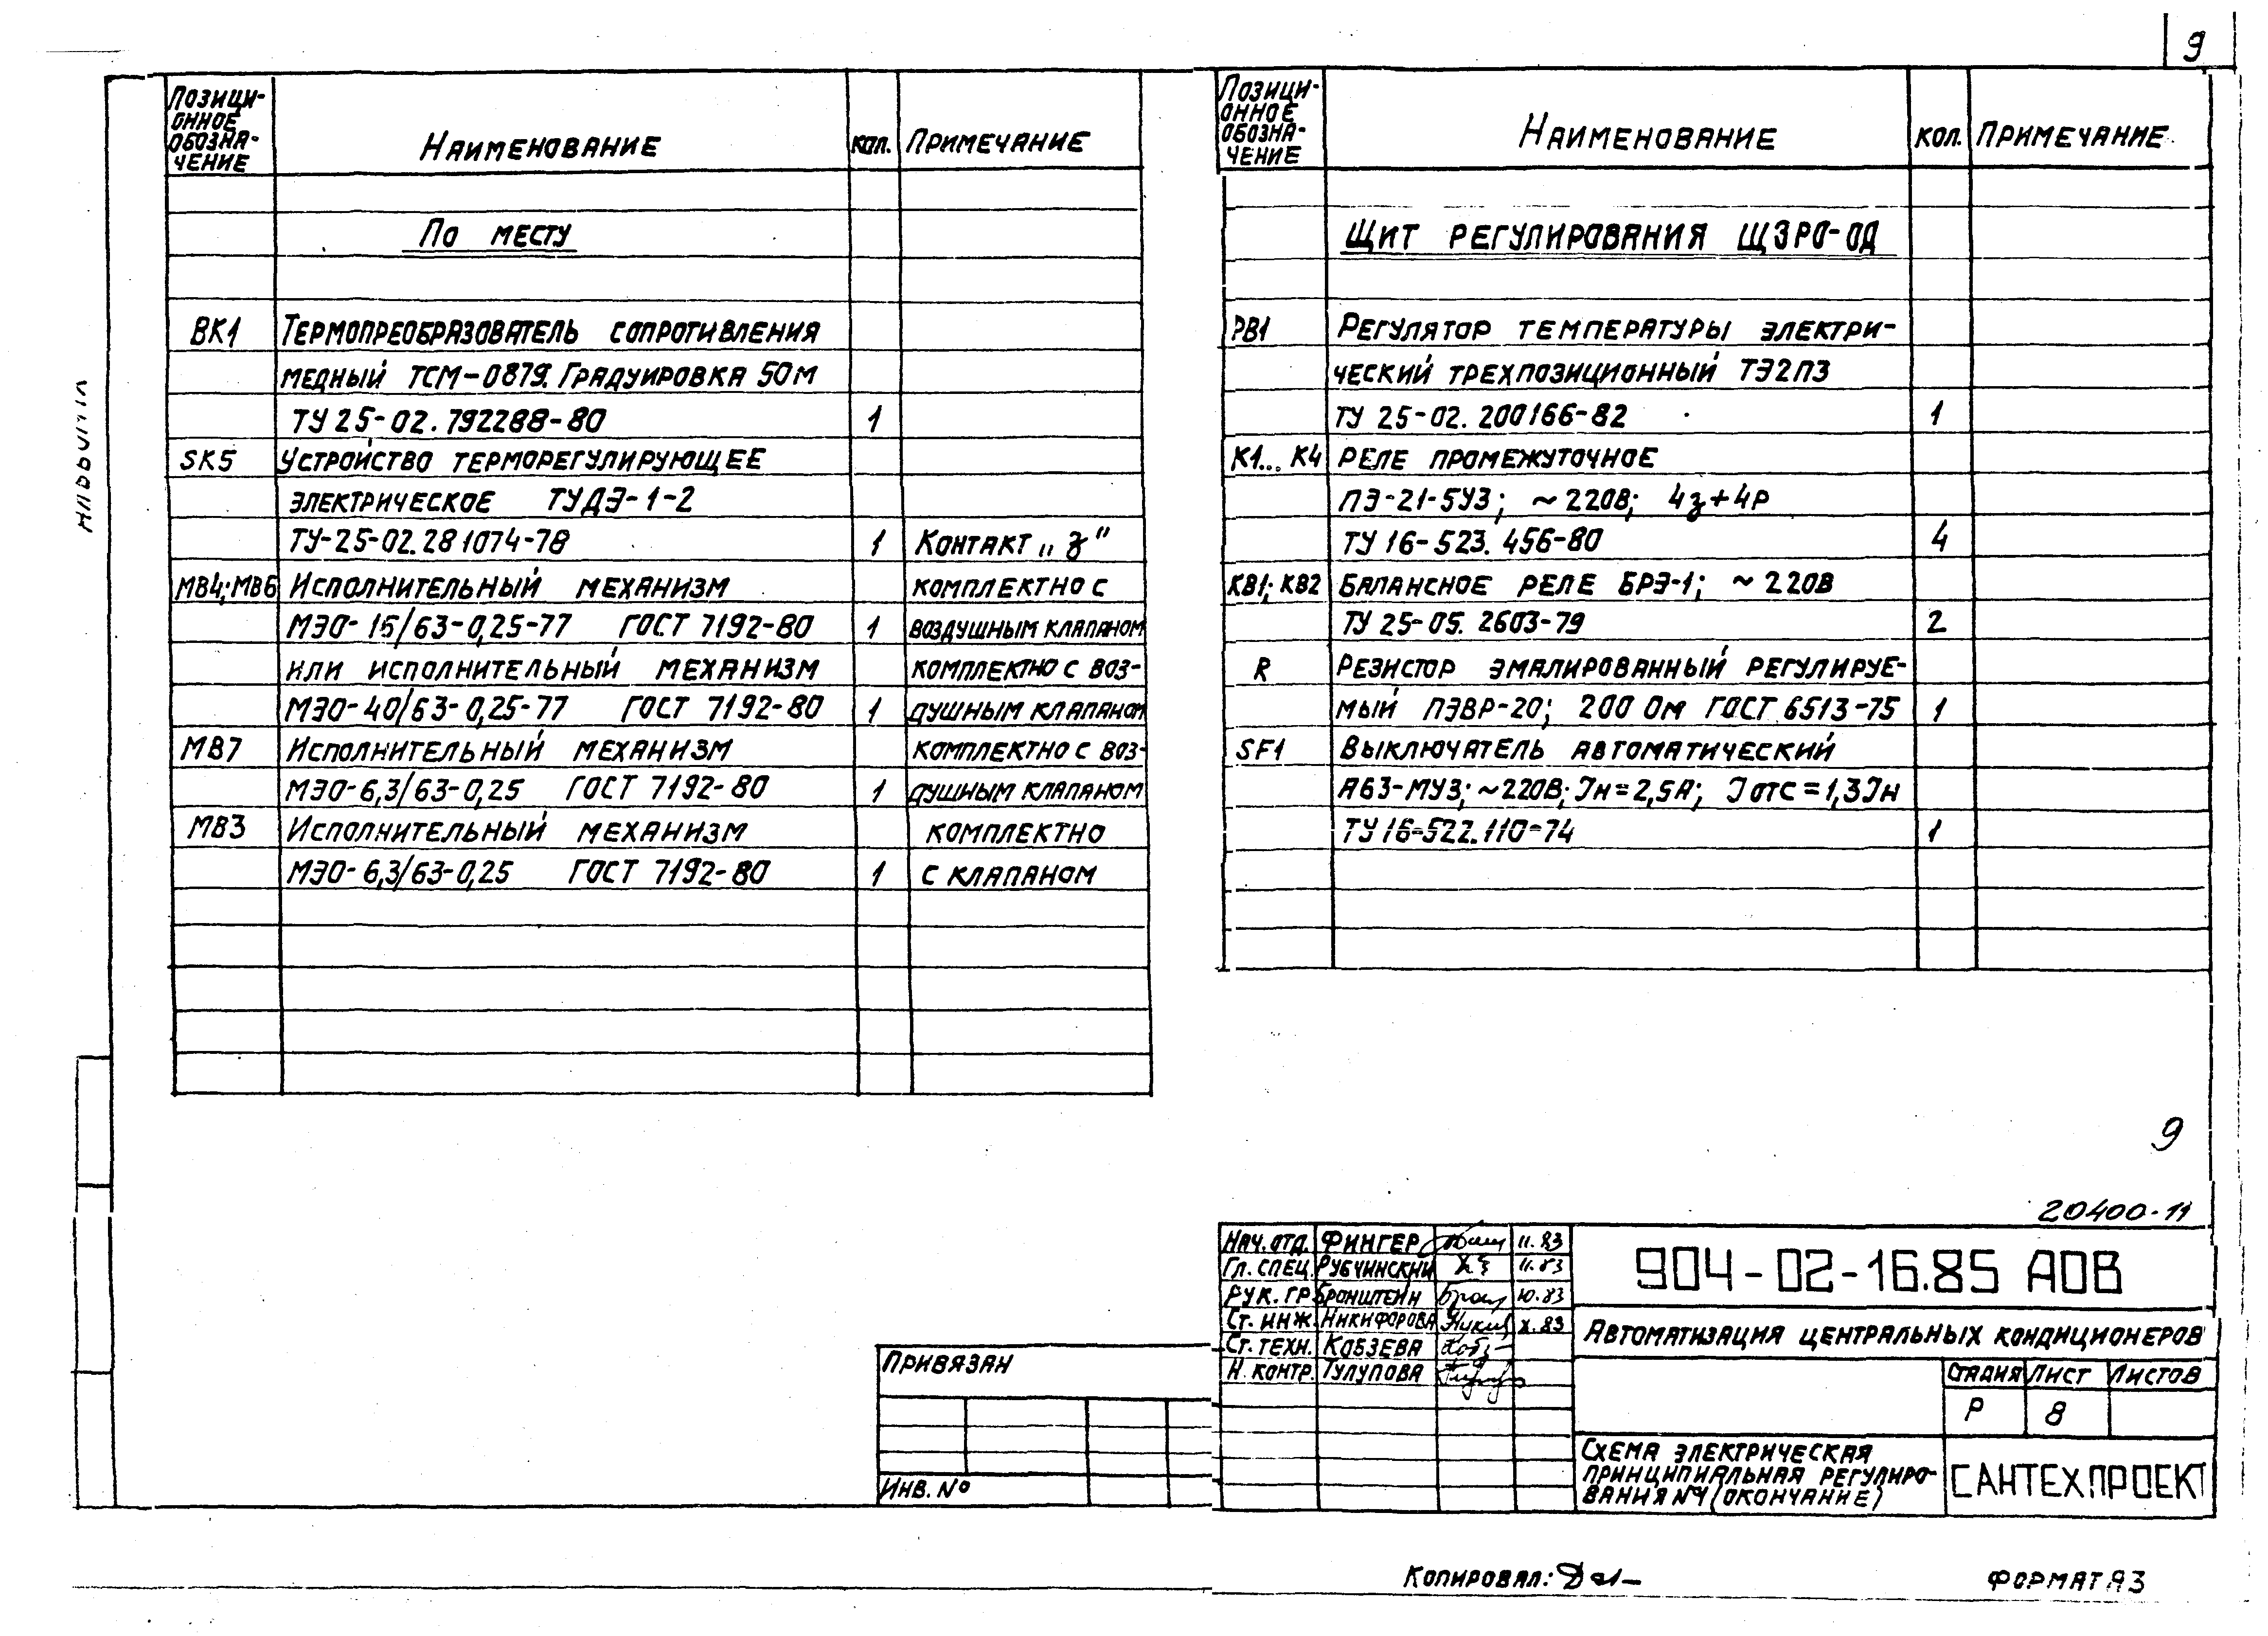 9
Позици-
онное
обозна-
чение
Наименование
кол.
Примечание
По месту
ВК1 Термопреобразователь сопротивления
медный ТСМ-0879. Градуировка 50М
ТУ 25-02.792288-80 1
SK5 Устройство терморегулирующее
электрическое ТУДЭ-1-2
ТУ-25-02.281074-78 1 Контакт „з"
МВ4; МВ6 Исполнительный механизм комплектно с
МЭО-16/63-0,25-77 ГОСТ 7192-80 1 воздушным клапаном
или исполнительный механизм комплектно с воз-
МЭО-40/63-0,25-77 ГОСТ 7192-80 1 душным клапаном
МВ7 Исполнительный механизм комплектно с воз-
МЭО-6,3/63-0,25 ГОСТ 7192-80 1 душным клапаном
МВ3 Исполнительный механизм комплектно
МЭО-6,3/63-0,25 ГОСТ 7192-80 1 с клапаном
Позици-
онное
обозна-
чение
Наименование
кол.
Примечание
Щит регулирования ЩЗРО-ОД
РВ1 Регулятор температуры электри-
ческий трехпозиционный ТЭ2П3
ТУ 25-02.200166-82 1
К1...К4 Реле промежуточное
ПЭ-21-5У3; ~220В; 4з+4р
ТУ 16-523.456-80 4
КВ1; КВ2 Балансное реле БРЭ-1; ~220В
ТУ 25-05.2603-79 2
R Резистор эмалированный регулируе-
мый ПЭВР-20; 200 Ом ГОСТ 6513-75 1
SF1 Выключатель автоматический
А63-МУ3; ~220В; Iн=2,5А; Iотс=1,3Iн
ТУ 16-522.110-74 1
9
20400-11
Нач. отд. Фингер 11.83
Гл. спец. Рубчинский 11.83
Рук. гр. Бронштейн 10.83
Ст. инж. Никифорова X.83
Ст. техн. Кобзева
Н. контр. Тулупова
904-02-16.85 АОВ
Автоматизация центральных кондиционеров
Стадия Лист Листов
Р 8
Схема электрическая
принципиальная регулиро-
вания №4 (окончание)
САНТЕХПРОЕКТ
Привязан
Инв. №
Копировал:
Формат А3